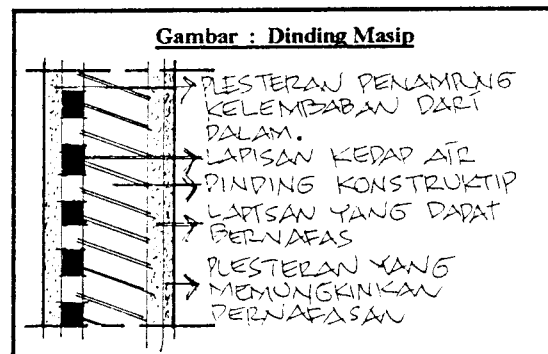 Gambar : Dinding Masip
PLESTERAN PENAMPUNG
KELEMBABAN DARI
DALAM.
LAPISAN KEDAP AIR
DINDING KONSTRUKTIP
LAPISAN YANG DAPAT
BERNAFAS
PLESTERAN YANG
MEMUNGKINKAN
PERNAFASAN